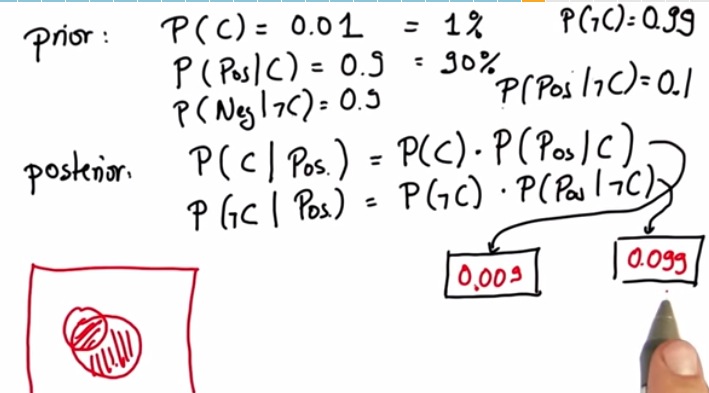 prior: P(C) = 0.01 = 1% P(¬C)=0.99
P(Pos|C) = 0.9 = 90%
P(Neg|¬C)=0.9 P(Pos|¬C)=0.1
posterior. P(C|Pos.) = P(C)·P(Pos|C)
P(¬C|Pos.) = P(¬C)·P(Pos|¬C)
0.009 0.099